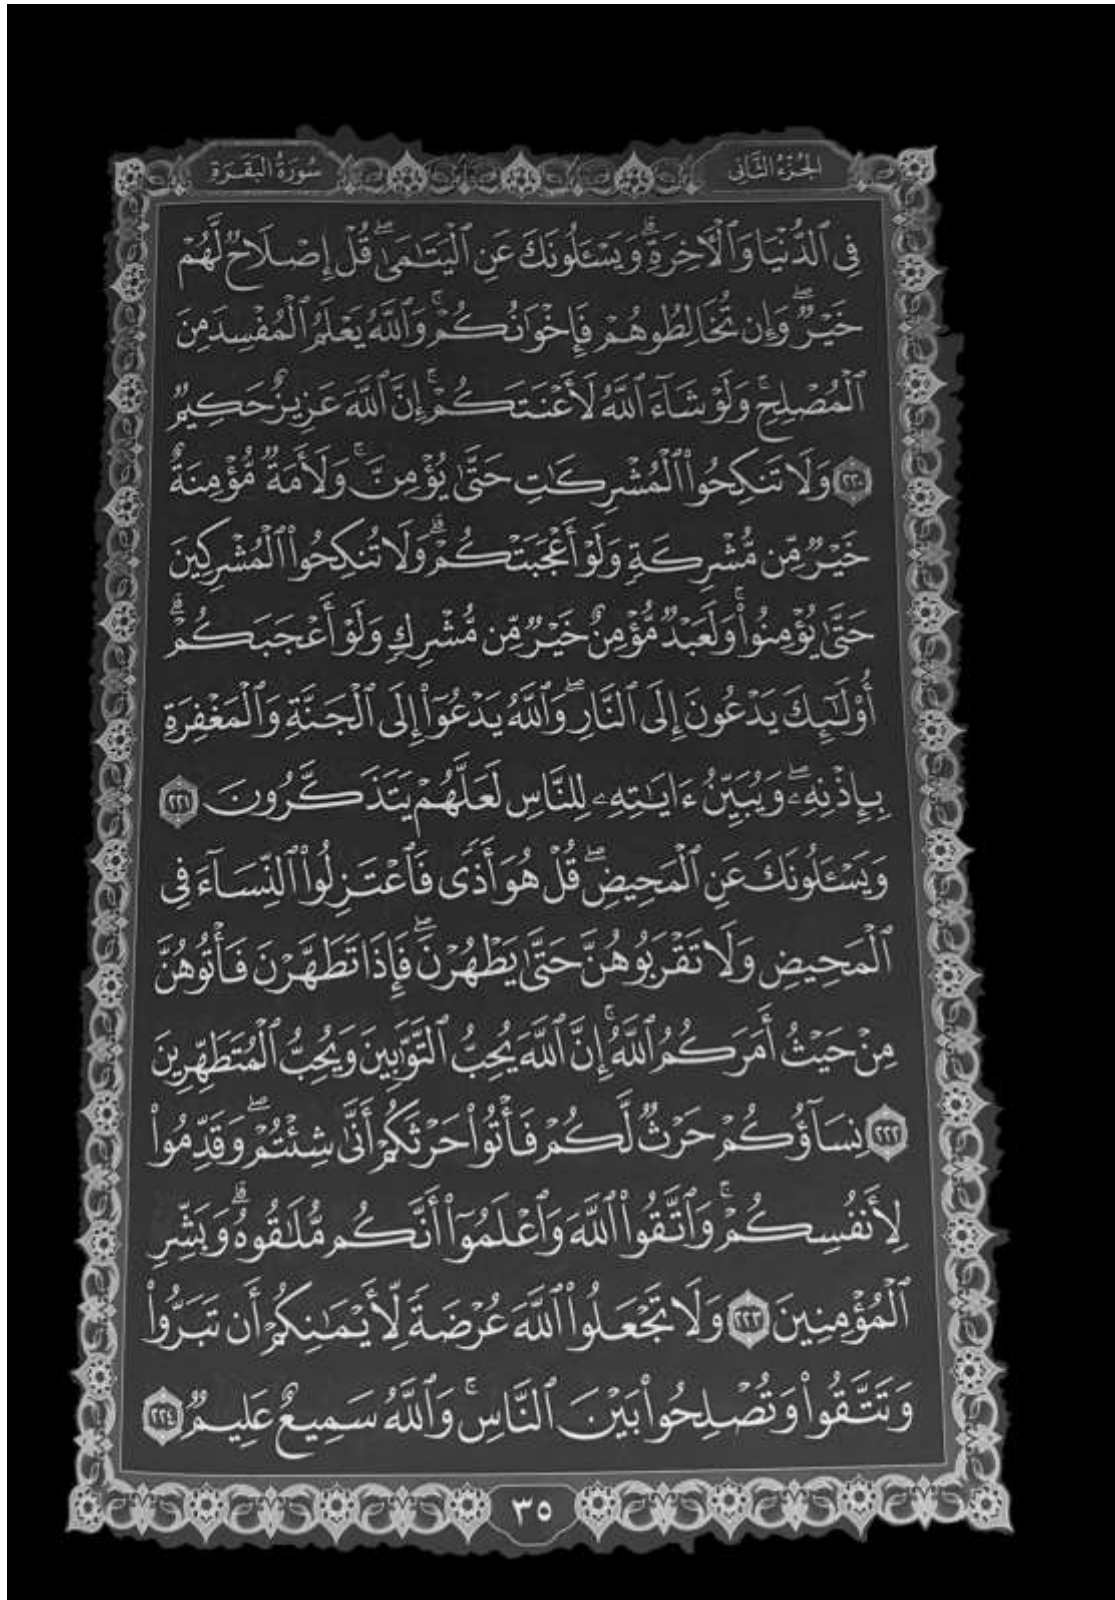 الجُزْءُ الثَّانِي
سُورَةُ البَقَرَةِ
فِي ٱلدُّنْيَا وَٱلْأَخِرَةِۗ وَيَسْـَٔلُونَكَ عَنِ ٱلْيَتَٰمَىٰۖ قُلْ إِصْلَاحٌ لَّهُمْ
خَيْرٌۖ وَإِن تُخَالِطُوهُمْ فَإِخْوَٰنُكُمْۚ وَٱللَّهُ يَعْلَمُ ٱلْمُفْسِدَ مِنَ
ٱلْمُصْلِحِۚ وَلَوْ شَآءَ ٱللَّهُ لَأَعْنَتَكُمْۚ إِنَّ ٱللَّهَ عَزِيزٌ حَكِيمٌ
٢٢٠ وَلَا تَنكِحُوا۟ ٱلْمُشْرِكَٰتِ حَتَّىٰ يُؤْمِنَّۚ وَلَأَمَةٌ مُّؤْمِنَةٌ
خَيْرٌ مِّن مُّشْرِكَةٍ وَلَوْ أَعْجَبَتْكُمْۗ وَلَا تُنكِحُوا۟ ٱلْمُشْرِكِينَ
حَتَّىٰ يُؤْمِنُوا۟ۚ وَلَعَبْدٌ مُّؤْمِنٌ خَيْرٌ مِّن مُّشْرِكٍ وَلَوْ أَعْجَبَكُمْۗ
أُو۟لَٰٓئِكَ يَدْعُونَ إِلَى ٱلنَّارِۖ وَٱللَّهُ يَدْعُوٓا۟ إِلَى ٱلْجَنَّةِ وَٱلْمَغْفِرَةِ
بِإِذْنِهِۦۖ وَيُبَيِّنُ ءَايَٰتِهِۦ لِلنَّاسِ لَعَلَّهُمْ يَتَذَكَّرُونَ ٢٢١
وَيَسْـَٔلُونَكَ عَنِ ٱلْمَحِيضِۖ قُلْ هُوَ أَذًى فَٱعْتَزِلُوا۟ ٱلنِّسَآءَ فِي
ٱلْمَحِيضِ وَلَا تَقْرَبُوهُنَّ حَتَّىٰ يَطْهُرْنَۖ فَإِذَا تَطَهَّرْنَ فَأْتُوهُنَّ
مِنْ حَيْثُ أَمَرَكُمُ ٱللَّهُۚ إِنَّ ٱللَّهَ يُحِبُّ ٱلتَّوَّٰبِينَ وَيُحِبُّ ٱلْمُتَطَهِّرِينَ
٢٢٢ نِسَآؤُكُمْ حَرْثٌ لَّكُمْ فَأْتُوا۟ حَرْثَكُمْ أَنَّىٰ شِئْتُمْۖ وَقَدِّمُوا۟
لِأَنفُسِكُمْۚ وَٱتَّقُوا۟ ٱللَّهَ وَٱعْلَمُوٓا۟ أَنَّكُم مُّلَٰقُوهُۗ وَبَشِّرِ
ٱلْمُؤْمِنِينَ ٢٢٣ وَلَا تَجْعَلُوا۟ ٱللَّهَ عُرْضَةً لِّأَيْمَٰنِكُمْ أَن تَبَرُّوا۟
وَتَتَّقُوا۟ وَتُصْلِحُوا۟ بَيْنَ ٱلنَّاسِۚ وَٱللَّهُ سَمِيعٌ عَلِيمٌ ٢٢٤
٣٥